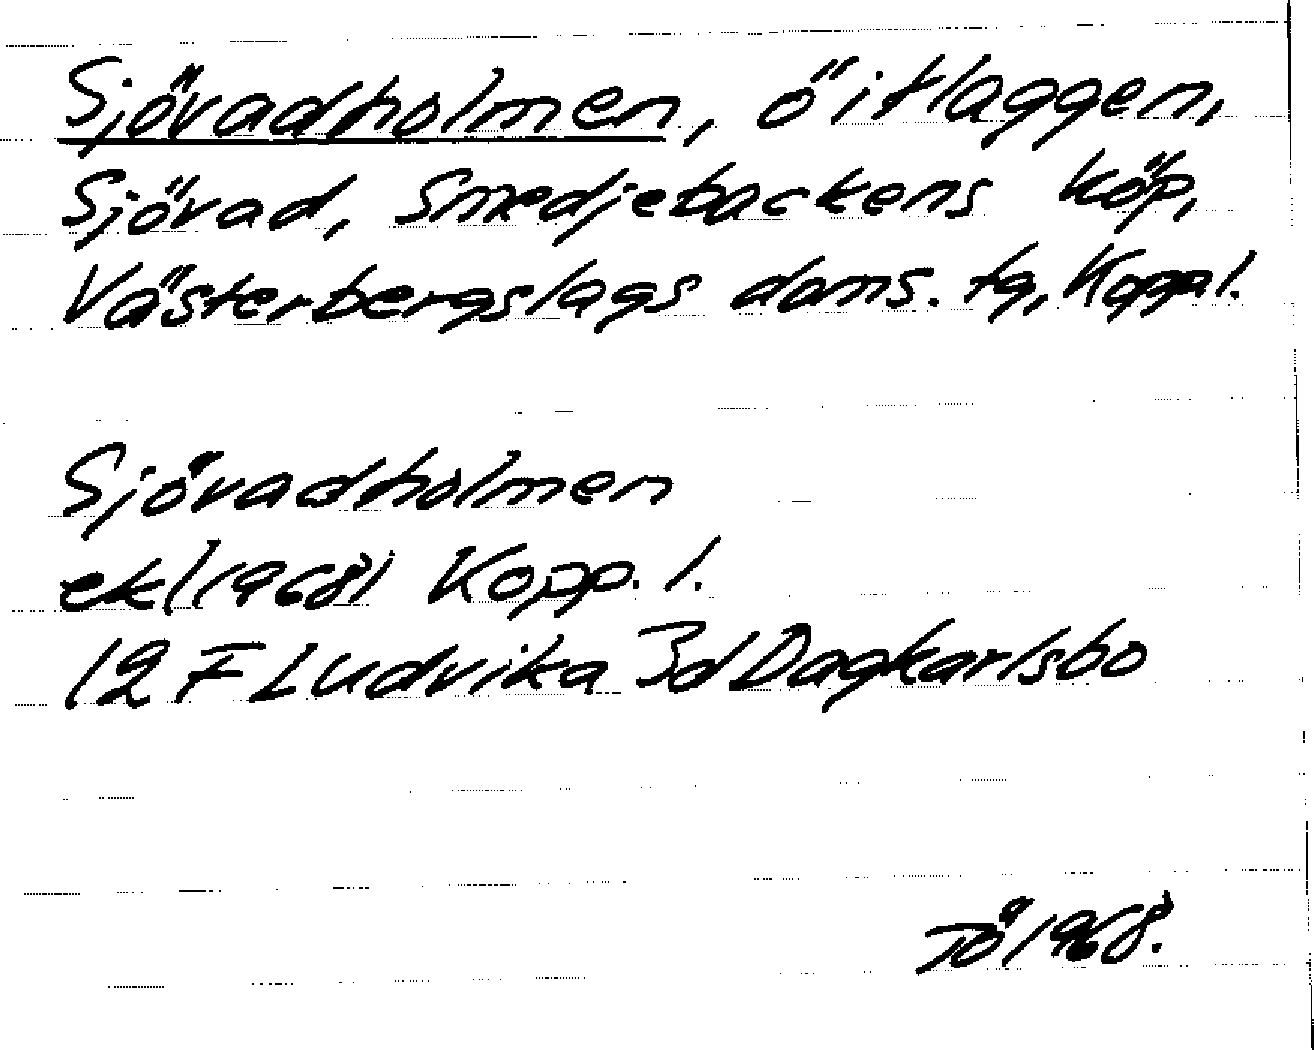 Sjövadholmen, ö i Haggen,
Sjövad, Smedjebackens köp,
Västerbergslags doms. tg, Kopp. l.
Sjövadholmen
ekl (1968) Kopp. l.
12 F Ludvika 3d Dagkarlsbo
TÖ 1968.